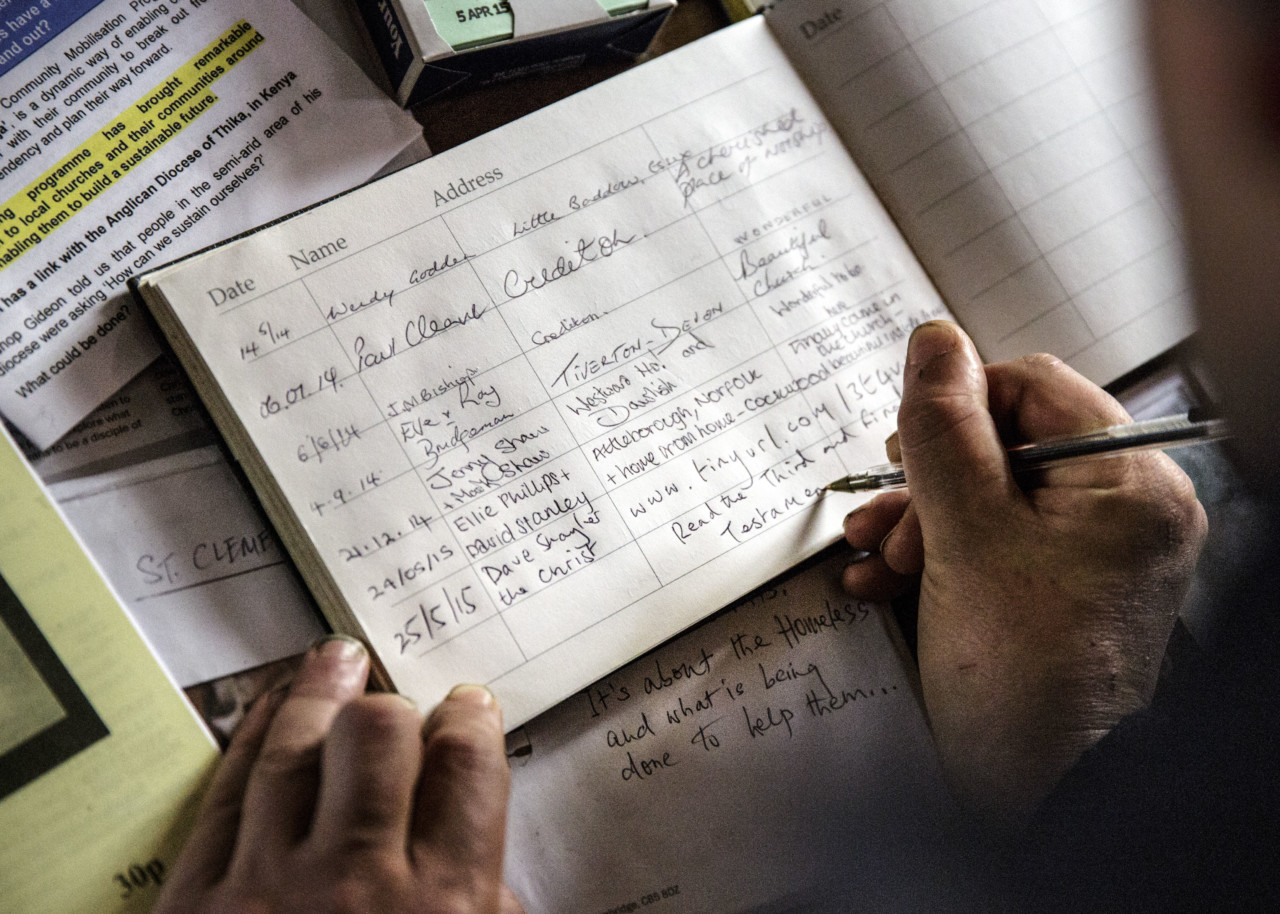 s have a
and out?
Community Mobilisation Pro
, is a dynamic way of enabling c
with their community to break out fr
endency and plan their way forward.
programme has brought remarkable
to local churches and their communities around
nabling them to build a sustainable future.
has a link with the Anglican Diocese of Thika, in Kenya
hop Gideon told us that people in the semi-arid area of his
diocese were asking 'How can we sustain ourselves?'
What could be done?
to be a disciple of
5 APR 15
Your
ST. CLEME
30p
Date Name Address
Date
Wendy Godden Little Baddow, Essex A cherished
place of worship
06.07.14. Paul Cleave Crediton. WONDERFUL
6/6/14 J.M.Bishop Crediton. Beautiful
Church.
4.9.14 Eve + Ray
Bridgeman TIVERTON-DEVON Wonderful to be
here
21.12.14 Jenny Shaw
+ Mark Shaw Westward Ho!
and
Dawlish Finally came in
the church -
24/05/15 Ellie Phillips +
David Stanley Attleborough, Norfolk
+ home from home - Cockwood beautiful inside
25/5/15 Dave Shayler
the Christ www.tinyurl.com/
Read the Third and Final
Testame
It's about the Homeless
and what is being
done to help them...
bridge, CB5 8DZ